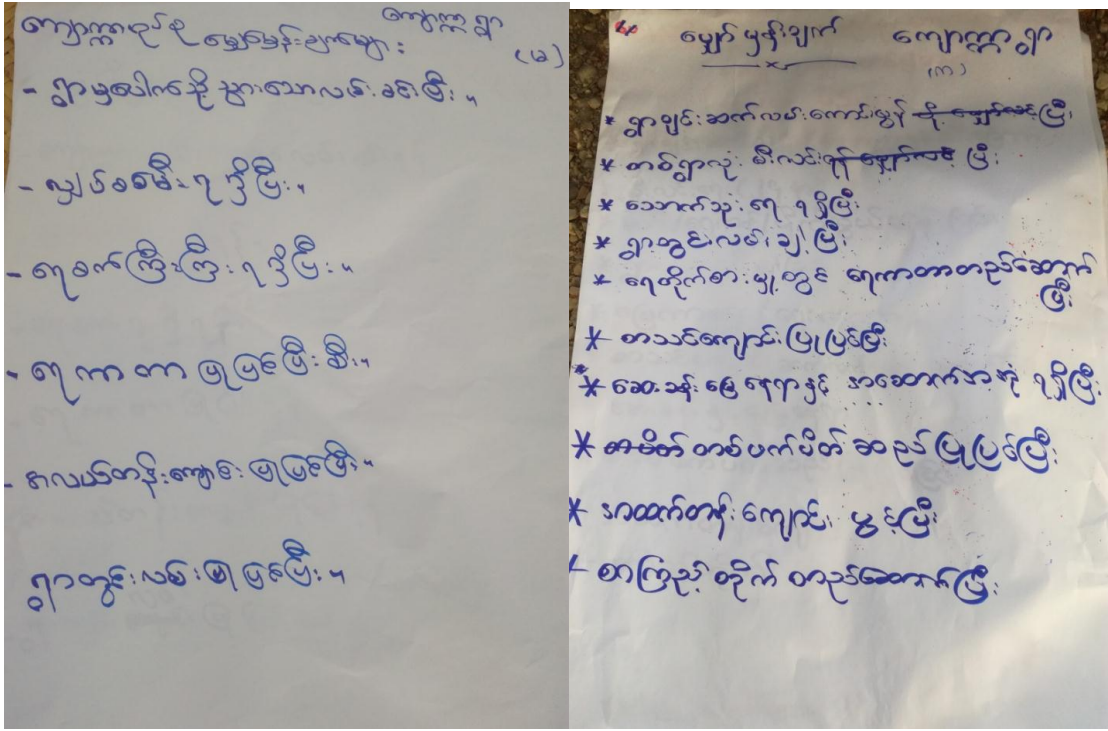 ကျောက္ကာရွာ
ကျောက္ကာစည်စု မျှော်မှန်းချက်များ
(မ)
- ရွာမှပေါက်သို့ သွားသောလမ်းခင်းပြီး။
- လျှပ်စစ်မီးရရှိပြီး။
- ရေစက်ကြီးကြီးရရှိပြီး။
- ရေကာတာပြုပြင်ပြီးစီး။
- အလယ်တန်းကျောင်းပြုပြင်ပြီး။
ရွာတွင်းလမ်းပြုပြင်ပြီး။
မျှော်မှန်းချက် ကျောက္ကာရွာ
(က)
* ရွာချင်းဆက်လမ်းကောင်းမွန် ပြီး
* တစ်ရွာလုံး မီးလင်း ပြီး
* သောက်သုံးရေ ရရှိပြီး
* ရွာတွင်းလမ်းချဲ့ပြီး
* ရေတိုက်စားမှုတွင် ရေကာတာတည်ဆောက်
ပြီး
* စာသင်ကျောင်းပြုပြင်ပြီး
* ဆေးခန်းမြေနေရာနှင့် အဆောက်အအုံ ရရှိပြီး
* တစ်ပက်ပိတ်ဆည်ပြုပြင်ပြီး
* အထက်တန်းကျောင်း ဖွင့်ပြီး
- စာကြည့်တိုက် တည်ဆောက်ပြီး